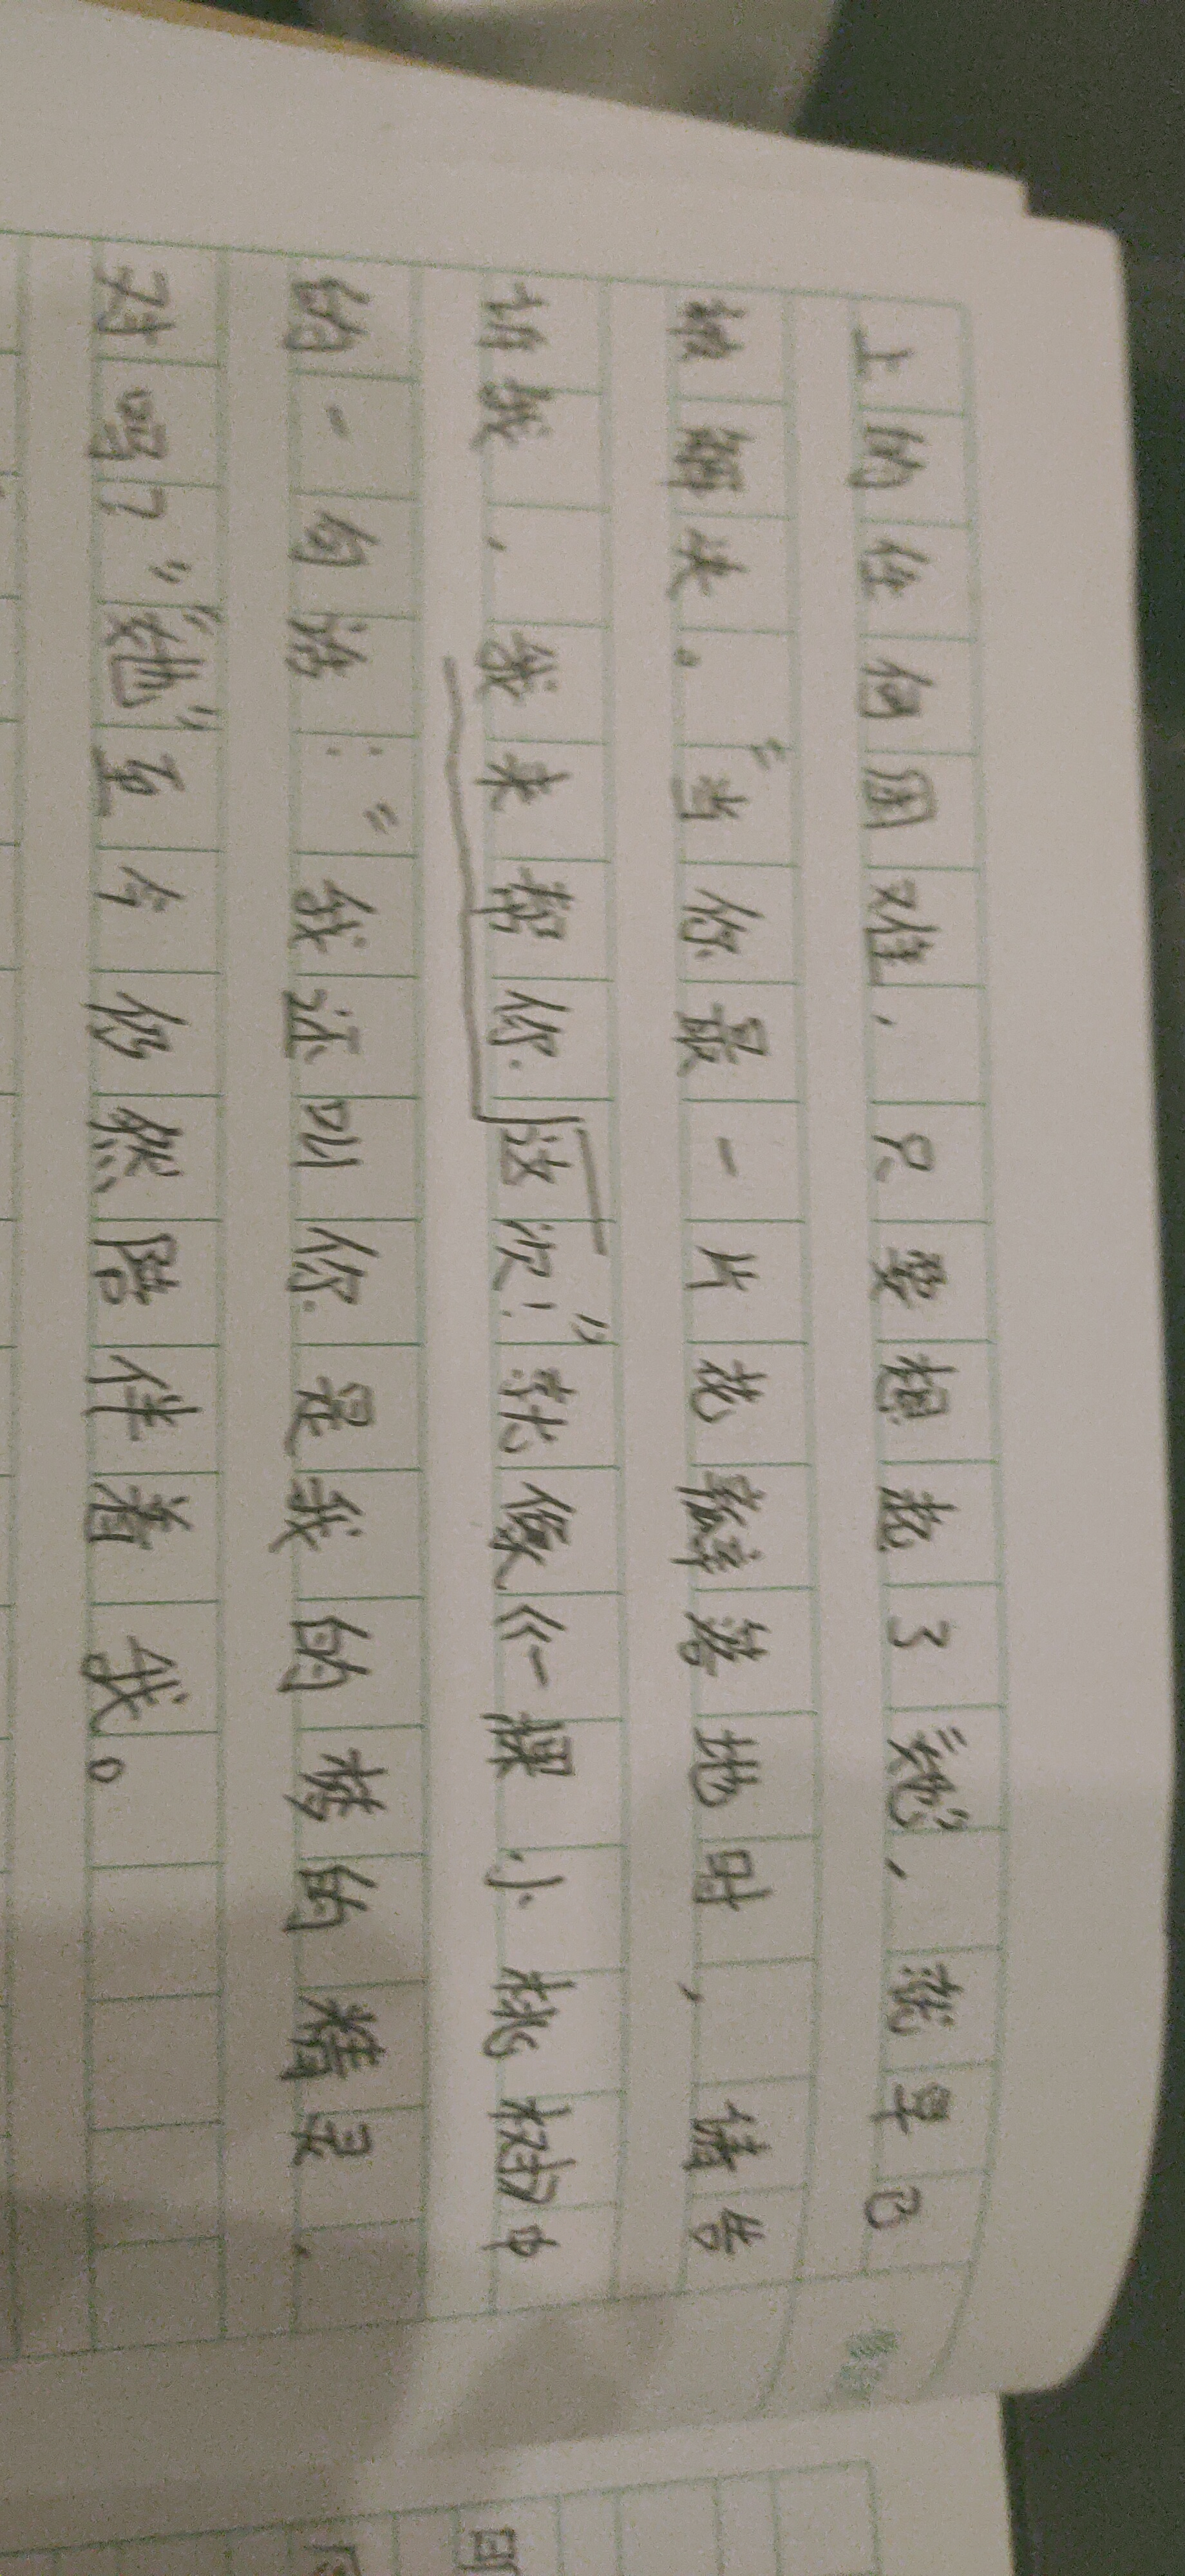 上的任何困难，只要想起了“她”，就早已
被解决。“当你最一片花瓣落地时，请告
诉我，我来帮你这次！”就像《一棵小桃树中
的一句话：“我还叫你是我的梦的精灵，
对吗？”“她”至今仍然陪伴着我。